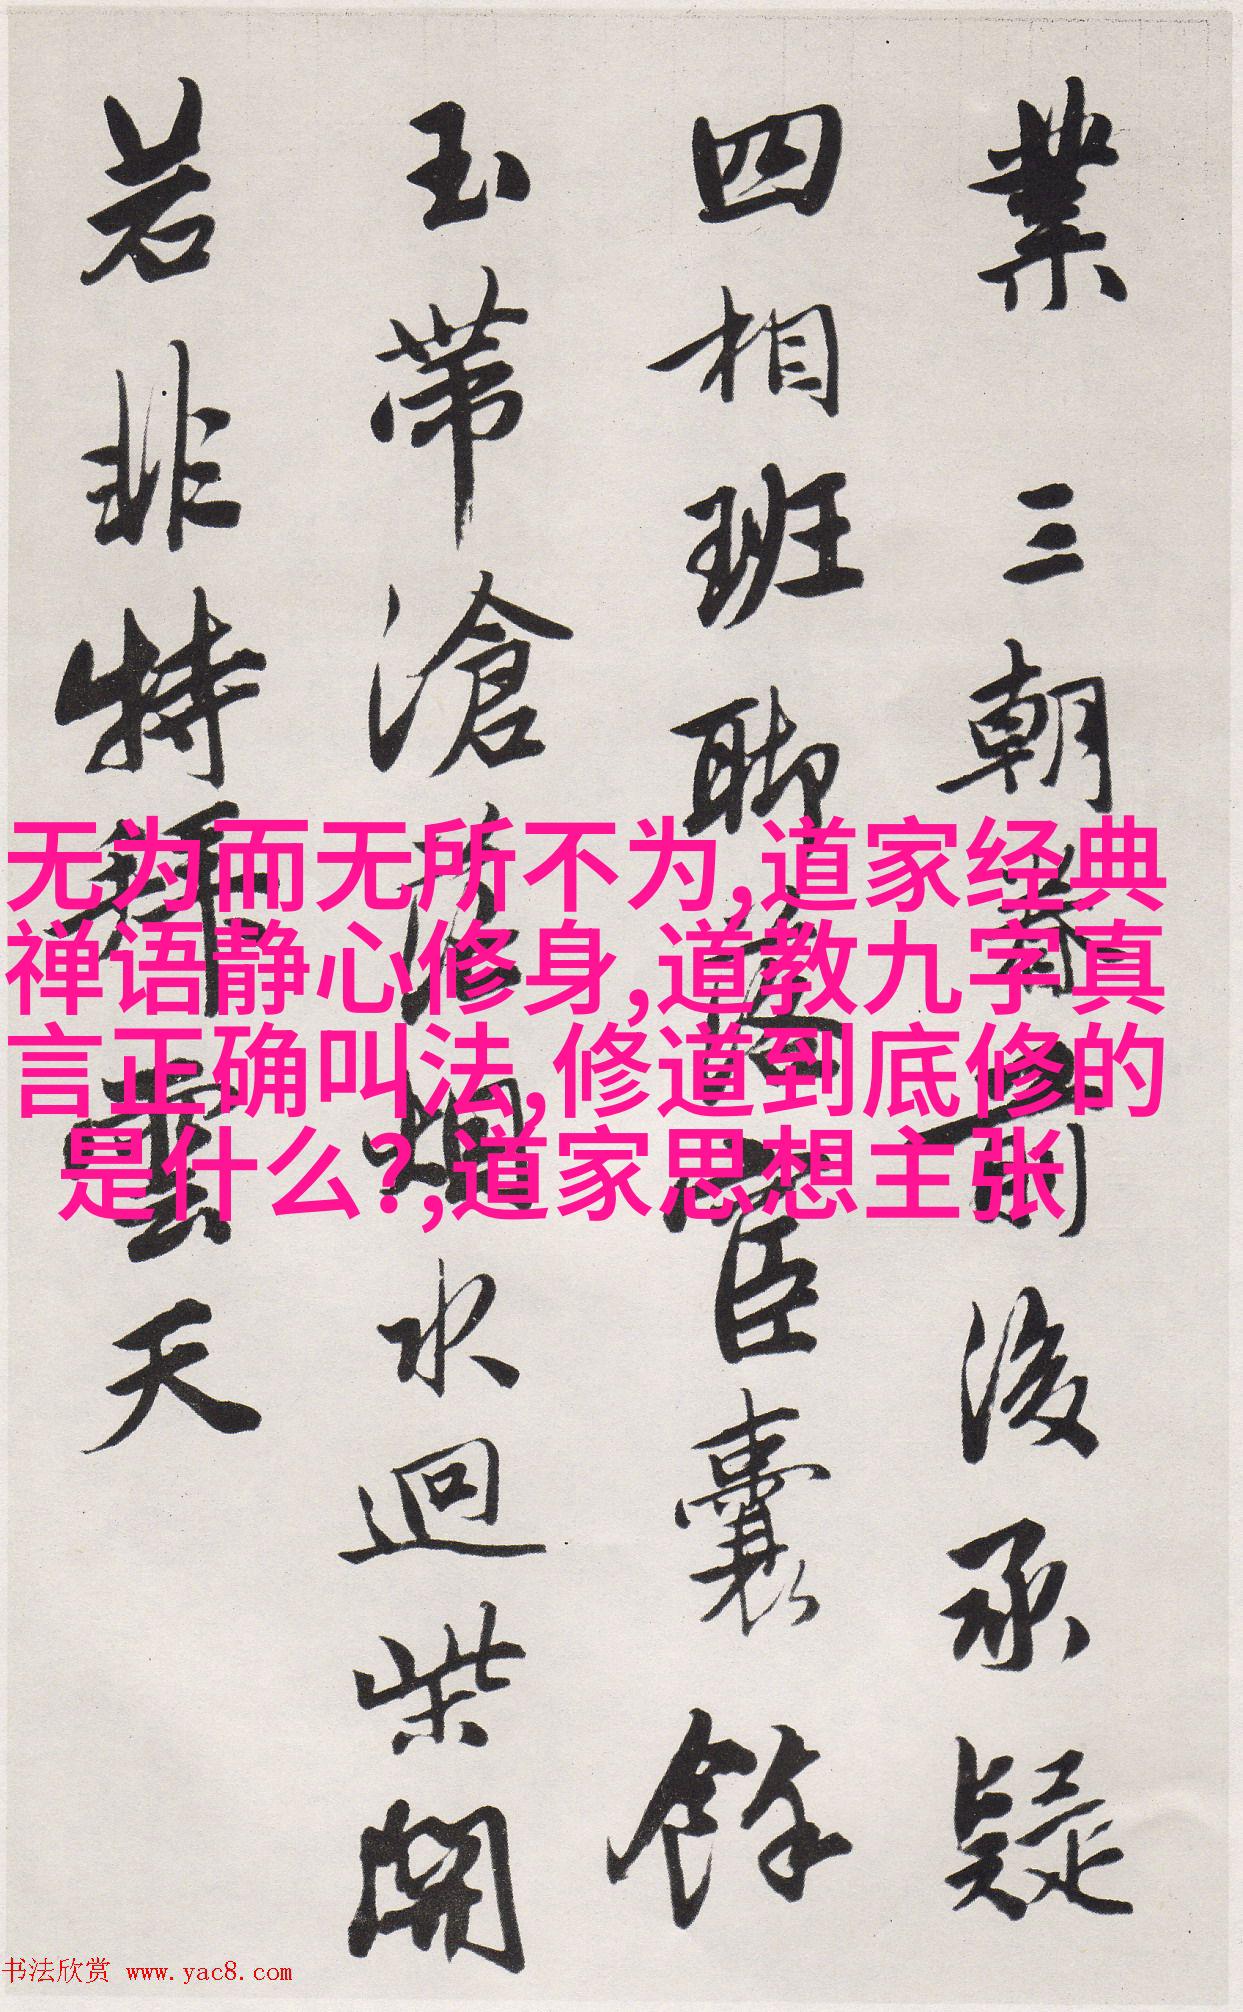 業 三朝前後承疑
四相班聯臣囊餘
玉帶滄烟水迥柴開
若非特拜雲天
无为而无所不为,道家经典
禅语静心修身,道教九字真
言正确叫法,修道到底修的
是什么?,道家思想主张
书法欣赏 www.yac8.com